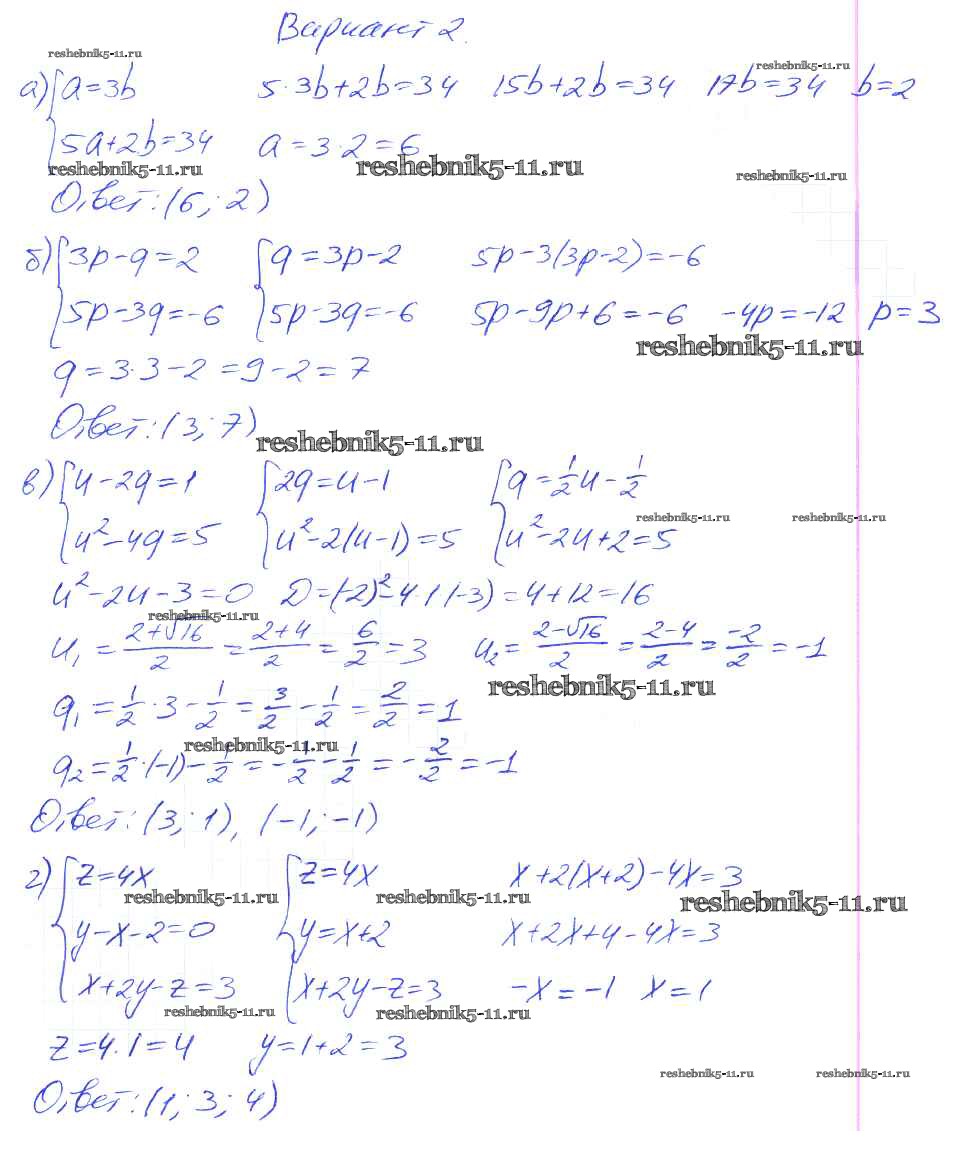 Вариант 2.
reshebnik5-11.ru reshebnik5-11.ru
а) { a=3b 5·3b+2b=34 15b+2b=34 17b=34 b=2
5a+2b=34 a=3·2=6
reshebnik5-11.ru reshebnik5-11.ru reshebnik5-11.ru
Ответ: (6; 2)
б) { 3p-q=2 { q=3p-2 5p-3(3p-2)=-6
5p-3q=-6 5p-3q=-6 5p-9p+6=-6 -4p=-12 p=3
reshebnik5-11.ru
q=3·3-2=9-2=7
Ответ: (3; 7)
reshebnik5-11.ru
в) { u-2q=1 { 2q=u-1 { q=1/2u-1/2
reshebnik5-11.ru reshebnik5-11.ru
u²-4q=5 u²-2(u-1)=5 u²-2u+2=5
u²-2u-3=0 D=(-2)²-4·(-3)=4+12=16
reshebnik5-11.ru
u₁=(2+√16)/2=(2+4)/2=6/2=3 u₂=(2-√16)/2=(2-4)/2=-2/2=-1
reshebnik5-11.ru
q₁=1/2·3-1/2=3/2-1/2=2/2=1
reshebnik5-11.ru
q₂=1/2·(-1)-1/2=-1/2-1/2=-2/2=-1
Ответ: (3; 1), (-1; -1)
г) { z=4x { z=4x x+2(x+2)-4x=3
reshebnik5-11.ru reshebnik5-11.ru reshebnik5-11.ru
y-x-2=0 y=x+2 x+2x+4-4x=3
x+2y-z=3 x+2y-z=3 -x=-1 x=1
reshebnik5-11.ru reshebnik5-11.ru
z=4·1=4 y=1+2=3
reshebnik5-11.ru reshebnik5-11.ru
Ответ: (1; 3; 4)